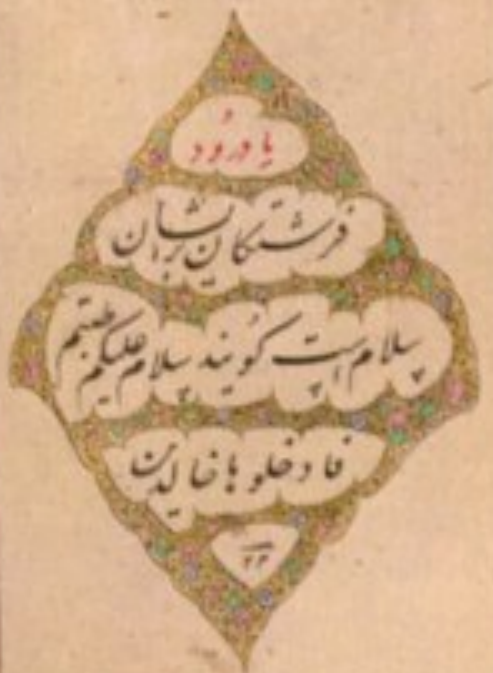 با درود
فرشتکان بریشان
سلام است کویند سلام علیکم طبتم
فادخلوها خالدین
۲۳